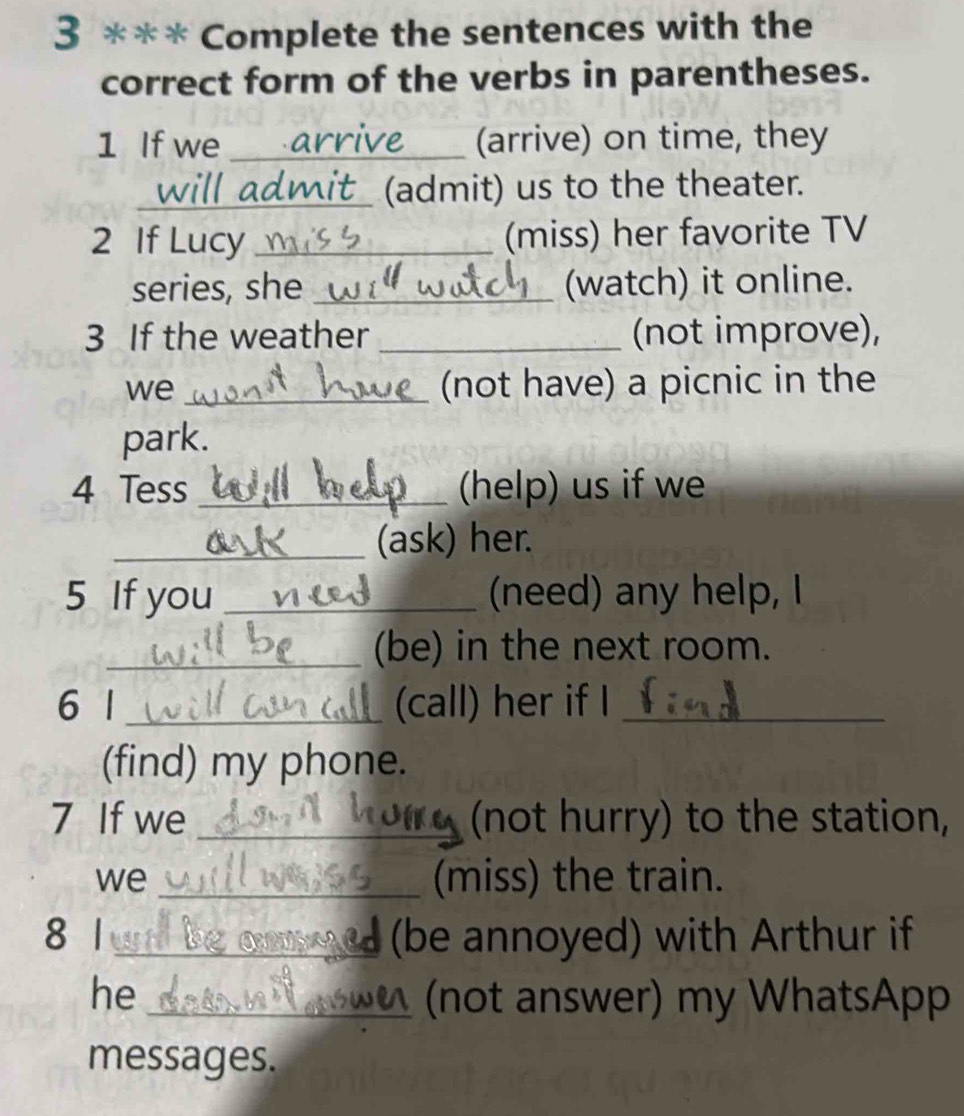 3 *** Complete the sentences with the
correct form of the verbs in parentheses.
1 If we arrive (arrive) on time, they
will admit (admit) us to the theater.
2 If Lucy miss (miss) her favorite TV
series, she will watch (watch) it online.
3 If the weather ____ (not improve),
we won't have (not have) a picnic in the
park.
4 Tess will help (help) us if we
ask (ask) her.
5 If you need (need) any help, I
will be (be) in the next room.
6 I will call (call) her if I find
(find) my phone.
7 If we don't hurry (not hurry) to the station,
we will miss (miss) the train.
8 I will be annoyed (be annoyed) with Arthur if
he doesn't answer (not answer) my WhatsApp
messages.